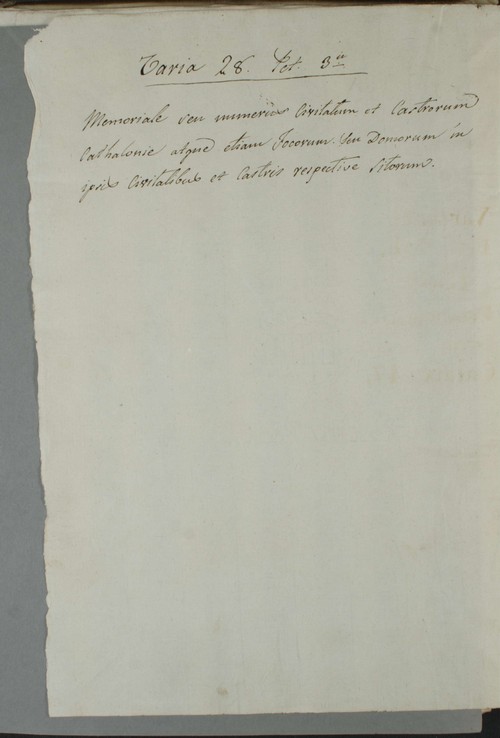 Varia 28. Pet. 3ii
Memoriale seu numerus Civitatum et Castrorum
Cathalonie atque etiam Focorum seu Domorum in
ipsis Civitatibus et Castris respective sitorum.